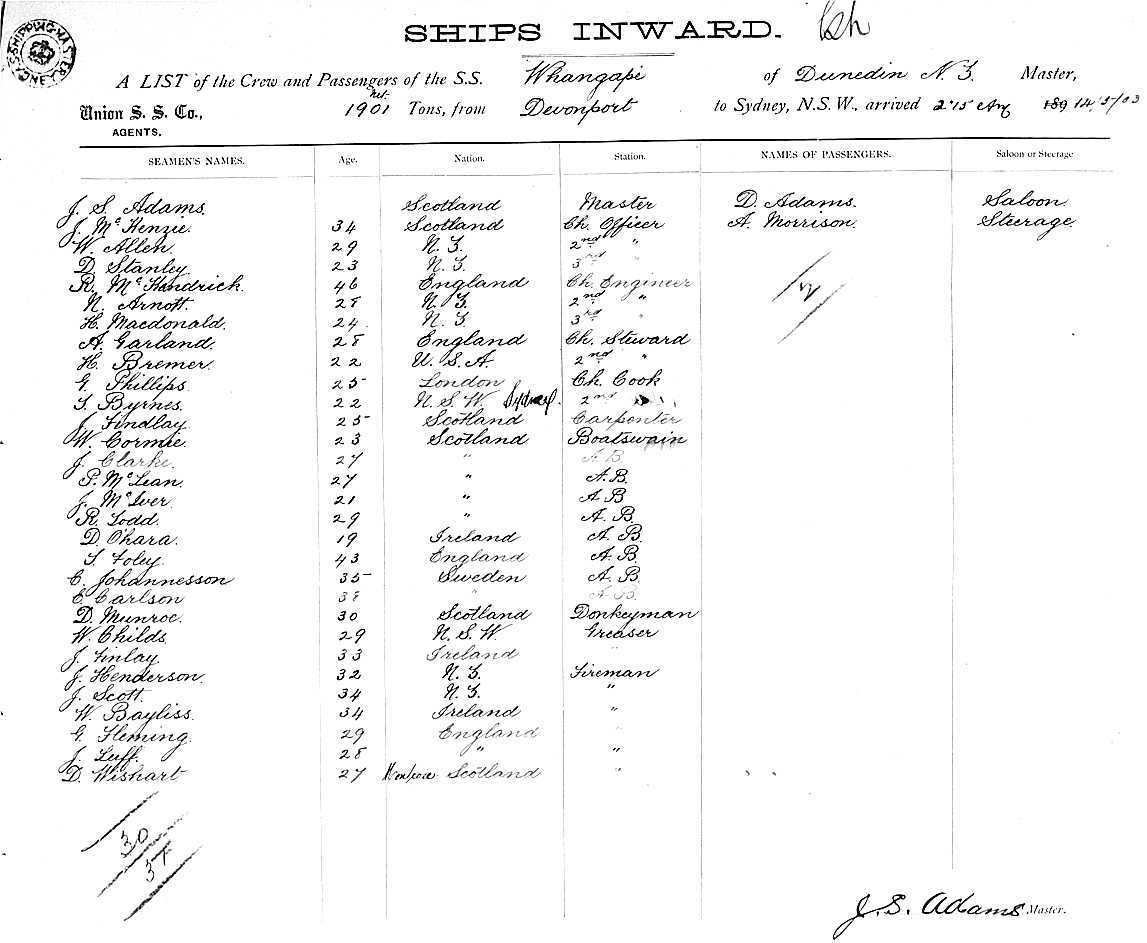 SHIPS INWARD.
A LIST of the Crew and Passengers of the S.S. Whangapé of Dunedin N. Z. Master,
Union S. S. Co., AGENTS. 1901 Net. Tons, from Devonport to Sydney, N.S.W., arrived 2.15 189 14/5/03
SEAMEN'S NAMES. Age. Nation. Station. NAMES OF PASSENGERS. Saloon or Steerage
J. S. Adams. Scotland Master D. Adams. Saloon.
J. McKenzie. 34 Scotland Ch. Officer A. Morrison. Steerage.
W. Allen. 29 N. Z. 2nd "
D. Stanley. 23 N. Z. 3rd "
R. McKendrick. 46 England Ch. Engineer
N. Arnott. 28 N. Z. 2nd "
H. Macdonald. 24. N. Z. 3rd "
A. Garland. 28 England Ch. Steward
H. Bremer. 22 U. S. A. 2nd "
G. Phillips. 25 London Ch. Cook
T. Byrnes. 22 N. S. W. Sydney. 2nd
J. Findlay. 25 Scotland Carpenter
W. Cormie. 23 Scotland Boatswain
J. Clarke. 27 " A. B.
P. McLean. 27 " A. B.
J. McIver. 21 " A. B
R. Todd. 29 " A. B.
D. O'hara. 19 Ireland A. B.
T. Foley. 43 England A. B.
C. Johannesson 35 Sweden A. B.
E. Carlson 38 " A. B.
D. Munroe. 30 Scotland Donkeyman
W. Childs. 29 N. S. W. Greaser
J. Finlay 33 Ireland "
J. Henderson. 32 N. Z. Fireman
J. Scott. 34 N. Z. "
W. Bayliss. 34 Ireland "
G. Fleming. 29 England "
J. Luff. 28 " "
D. Wishart 27 Scotland "
30
J. S. Adams Master.